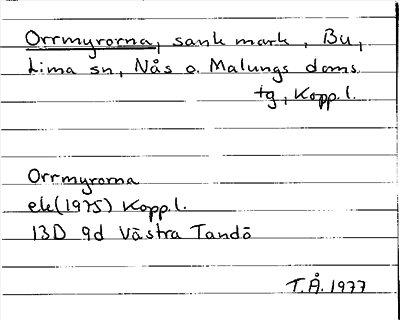 Orrmyrorna, sank mark, Bu,
Lima sn, Nås o. Malungs doms.
tg, Kopp.l.
Orrmyrorna
ek(1975) Kopp.l.
13D 9d Västra Tandö
T.Å. 1977